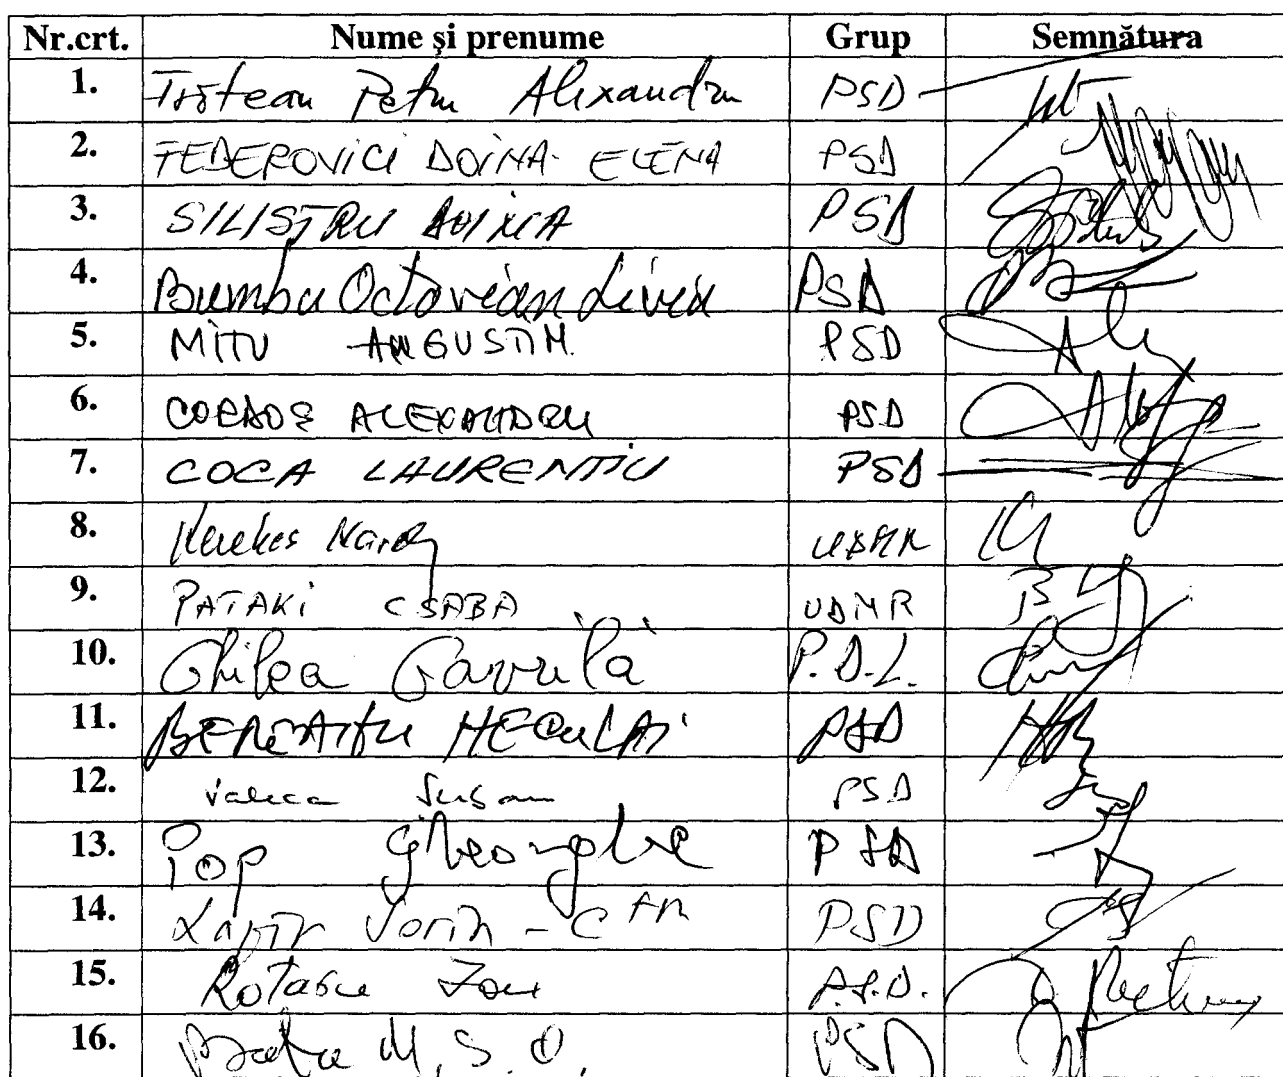 Nr.crt. Nume și prenume Grup Semnătura
1. Petru Alexandru PSD
2. FEDEROVICI DOINA-ELENA PSD
3. SILISTRU DOINA PSD
4. Bumbu Octavian Liviu PSD
5. MITU AUGUSTIN PSD
6. CORDOȘ ALEXANDRU PSD
7. COCA LAURENȚIU PSD
8. Kerekes Karoly UDMR
9. PATAKI CSABA UDMR
10. Ghilea Găvrilă P.D.L.
11. NECULAI PSD
12. Valeca Șerban PSD
13. Pop Gheorghe PSD
14. Sorin - PSD
15. Rotaru Ion P.S.D.
16. M. S. O. PSD